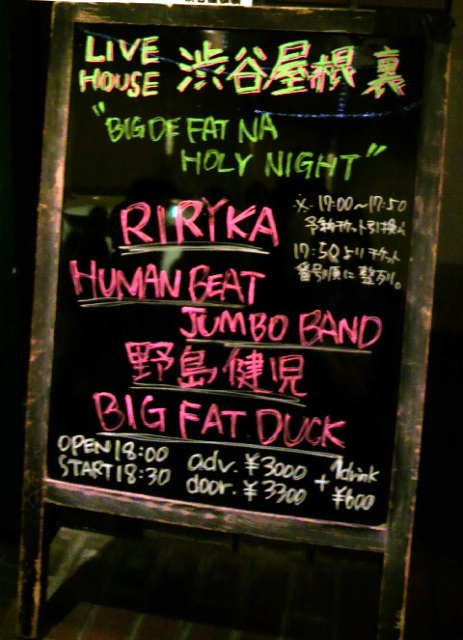 LIVE HOUSE 渋谷屋根裏
"BIG DE FAT NA
HOLY NIGHT"
RIRYKA
※ 17:00〜17:50
予約チケット引換え
17:50よりチケット
番号順に整列。
HUMAN BEAT
JUMBO BAND
野島健児
BIG FAT DUCK
OPEN 18:00
START 18:30
adv. ¥3000
door. ¥3300
+ 1drink
¥600